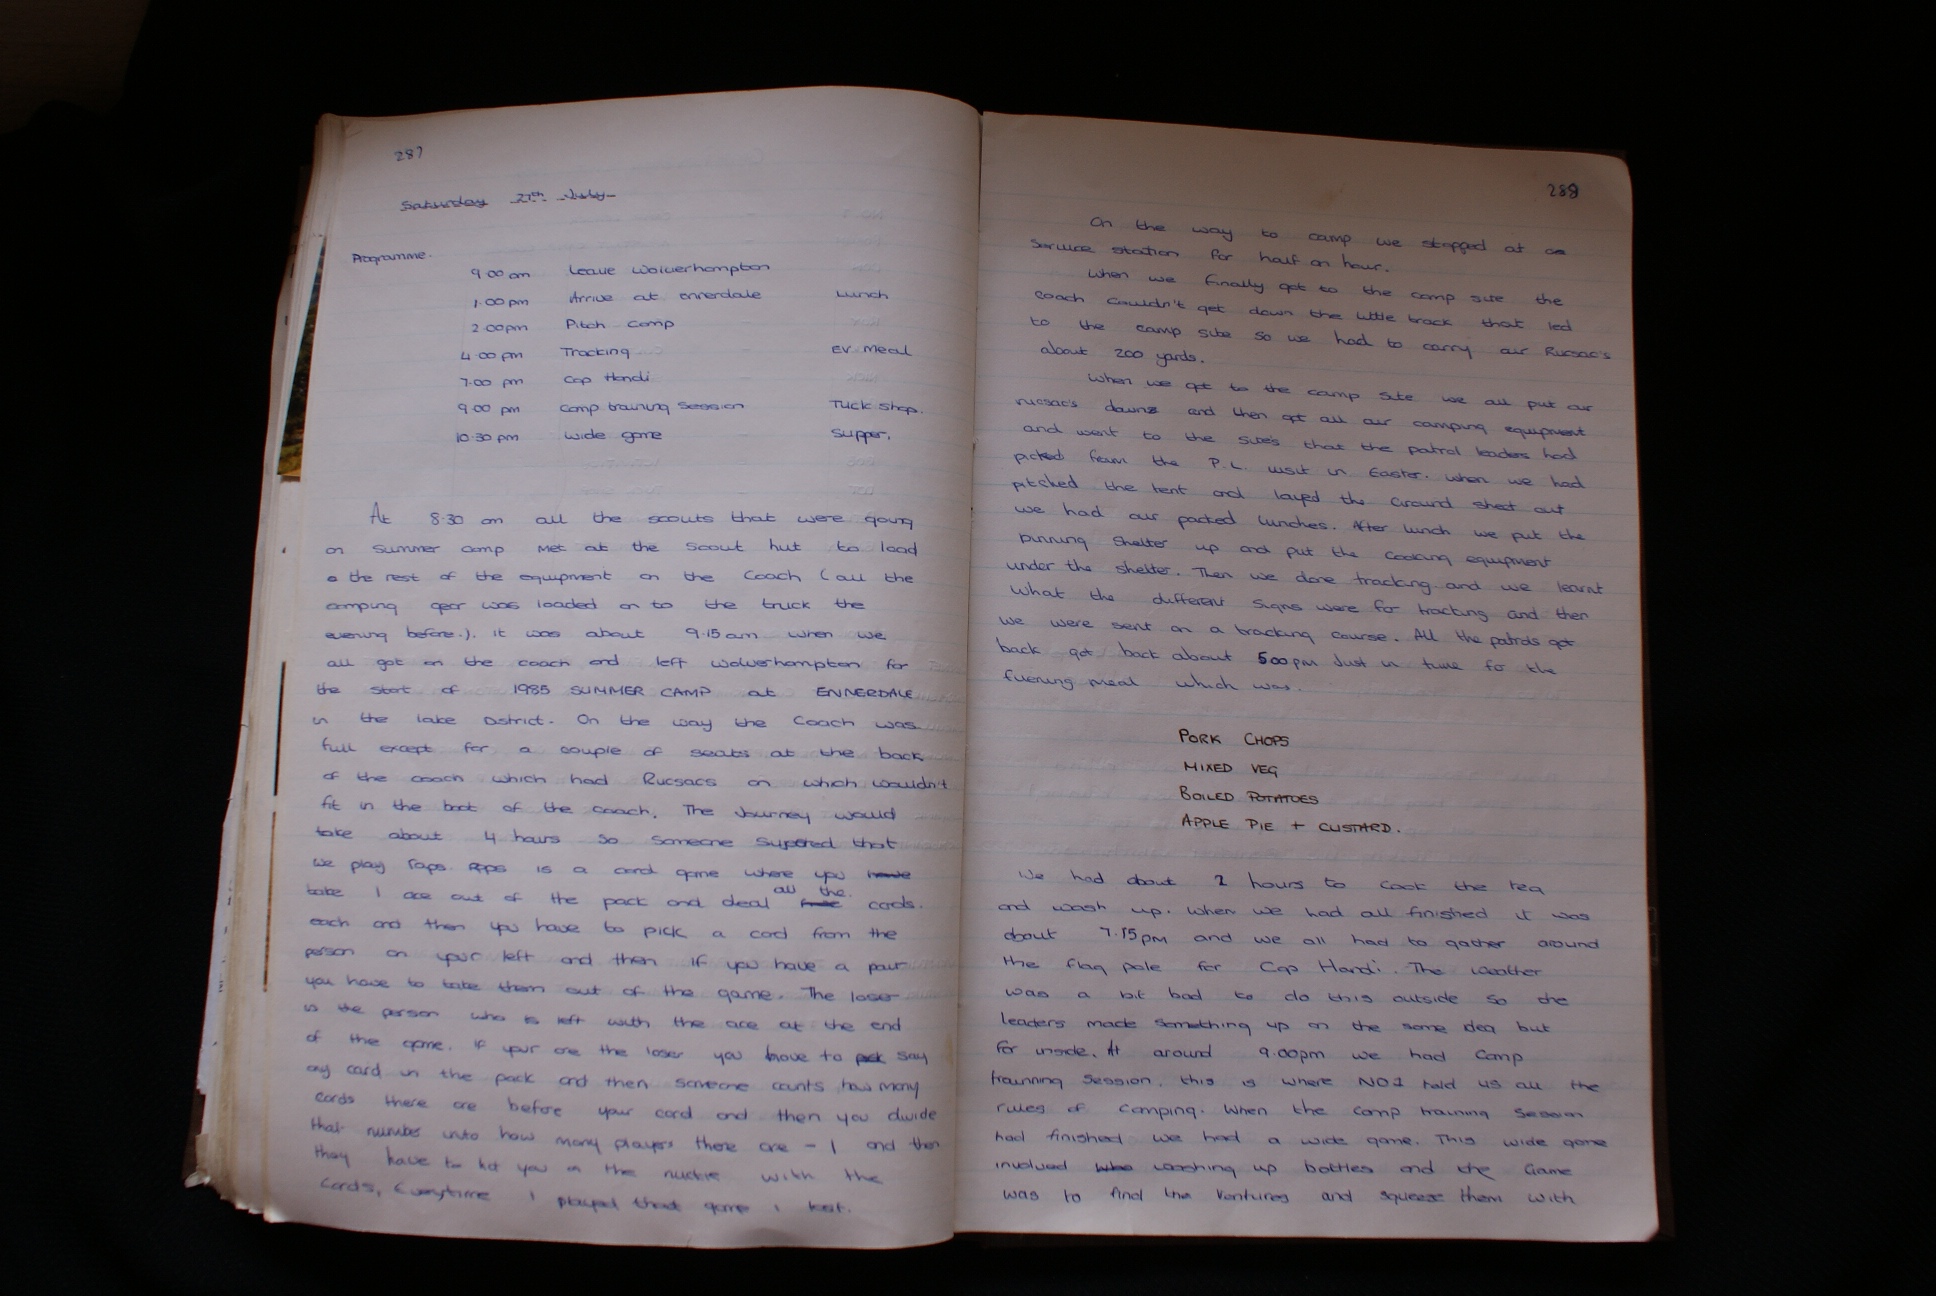 287
Saturday 27th July
Programme.
9.00 am Leave Wolverhampton
1.00 pm Arrive at ennerdale Lunch
2.00pm Pitch Camp
4.00 pm Tracking Ev Meal
7.00 pm Cap Handi
9.00 pm Camp training Session Tuck Shop.
10.30 pm wide game Supper.
At 8.30 am all the scouts that were going
on summer camp met at the scout hut to load
the rest of the equipment on the Coach (all the
camping gear was loaded on to the truck the
evening before.). it was about 9.15am when we
all got on the coach and left Wolverhampton for
the start of 1985 SUMMER CAMP at ENNERDALE
in the lake District. On the way the Coach was
full except for a couple of seats at the back
of the coach which had Rucsacs on which wouldn't
fit in the boot of the coach. The Journey would
take about 4 hours so someone that
we play raps. Raps is a card game where you have
take 1 ace out of the pack and deal all the cards.
each and then you have to pick a card from the
person on your left and then if you have a pair
you have to take them out of the game. The loser
is the person who is left with the ace at the end
of the game. if your are the loser you have to pick say
any card in the pack and then someone counts how many
cards there are before your card and then you divide
that number into how many players there are - 1 and then
they have to hit you on the nuckle with the
cards, Everytime I played that game i lost.
289
On the way to camp we stopped at a
Service station for half an hour.
When we finally got to the camp site the
coach couldn't get down the little track that led
to the camp site so we had to carry our Rucsac's
about 200 yards.
When we got to the camp site we all put our
rucsac's down and then got all our camping equipment
and went to the site's that the patrol leaders had
picked from the P.L. visit in Easter. when we had
pitched the tent and layed the Ground sheet out
we had our packed lunches. After lunch we put the
Dinning Shelter up and put the cooking equipment
under the shelter. Then we done tracking and we learnt
what the different signs were for tracking and then
we were sent on a tracking course. All the patrols got
back got back about 5.00pm Just in time for the
Evening meal which was.
PORK CHOPS
MIXED VEG
BOILED POTATOES
APPLE PIE + CUSTARD.
We had about 2 hours to cook the tea
and wash up. When we had all finished it was
about 7.15pm and we all had to gather around
the flag pole for Cap Handi. The weather
was a bit bad to do this outside so the
leaders made something up on the same idea but
for inside. At around 9.00pm we had Camp
trainning Session. this is where NO1 told us all the
rules of Camping. When the camp training Session
had finished we had a wide game. This wide game
involved washing up bottles and the Game
was to find the Ventures and squeeze them with